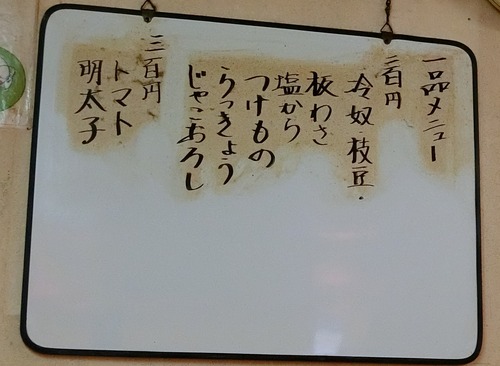 一品メニュー
二百円
冷奴・枝豆・
板わさ
塩から
つけもの
らっきょう
じゃこおろし
三百円
トマト
明太子